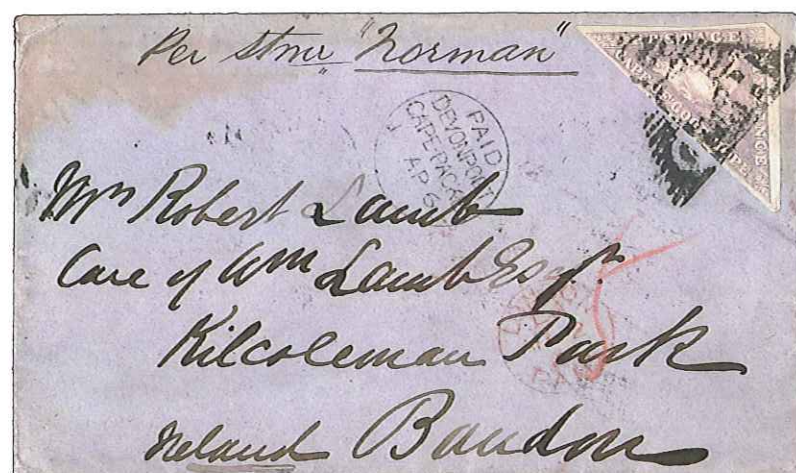 Per Stmr "Norman"
POSTAGE
CAPE OF GOOD HOPE
PAID
DEVONPORT
CAPE PACKET
AP 6
Mrs Robert Lamb
Care of Wm Lamb Esqr.
Kilcoleman Park
Ireland Bandon
PAID